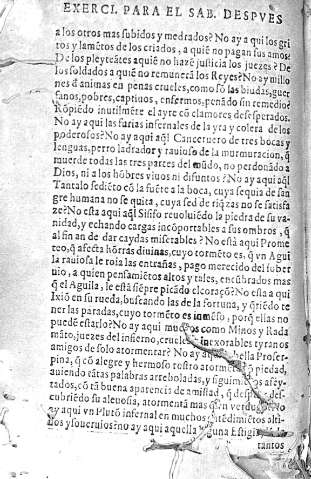 EXERCI. PARA EL SAB. DESPVES
a los otros mas subidos y medrados? No ay a qui los gri
tos y lamẽtos de los criados, a quiẽ no pagan sus amos?
De los pleyteãtes aquiẽ no hazẽ justicia los juezes? De
los soldados a quiẽ no remunerã los Reyes? No ay millo
nes d animas en penas crueles, como sõ las biudas, guer
fanos, pobres, captiuos, enfermos, penãdo sin remedio?
Rõpiẽdo inutilmẽte el ayre cõ clamores desesperados.
No ay aqui las furias infernales de la yra y colera de los
poderosos? No ay aqui al Canceruero de tres bocas y
lenguas, perro ladrador y rauioso de la murmuracion, q̃
muerde todas las tres partes del mũdo, no perdonãdo a
Dios, ni a los hõbres viuos ni difuntos? No ay aqui al
Tantalo sediẽto cõ la fuẽte a la boca, cuya sequia de san
gre humana no se quita, cuya sed de riq̃zas no se satisfa
ze? No esta aqui al Sisifo reuoluiẽdo la piedra de su va-
nidad, y echando cargas incõportables a sus ombros, q̃
al fin an de dar caydas miserables? No està aqui Prome
teo, q̃ afecta hõrras diuinas, cuyo tormẽto es, q̃ vn Agui
la rauiosa le roia las entrañas, pago merecido del sober
uio, a quien pensamiẽtos altos y tales, encũbrados mas
q̃ el Aguila, le estã siẽpre picãdo el coraçõ? No està aqui
Ixiõ en su rueda, buscando las de la fortuna, y q̃riẽdo te
ner las paradas, cuyo tormẽto es inmẽso, porq̃ ellas no
puedẽ estarlo? No ay aqui muchos como Minos y Rada
mãto, juezes del infierno, crueles inexorables tyranos
amigos de solo atormentar? No ay aqui bella Proser-
pina, q̃ cõ alegre y hermoso rostro atormẽta piedad,
auiendo tãtas palabras arreboladas, y figuim̃ afey-
tados, cõ tã buena aparencia de amistad, q̃ despues des-
cubriẽdo su aleuosia, atormentã mas q̃ vn verdugo? No
ay aqui vn Plutõ infernal en muchos entẽdimiẽtos alti-
uos y soueruios? no ay aqui aquella laguna Estigia
tantos